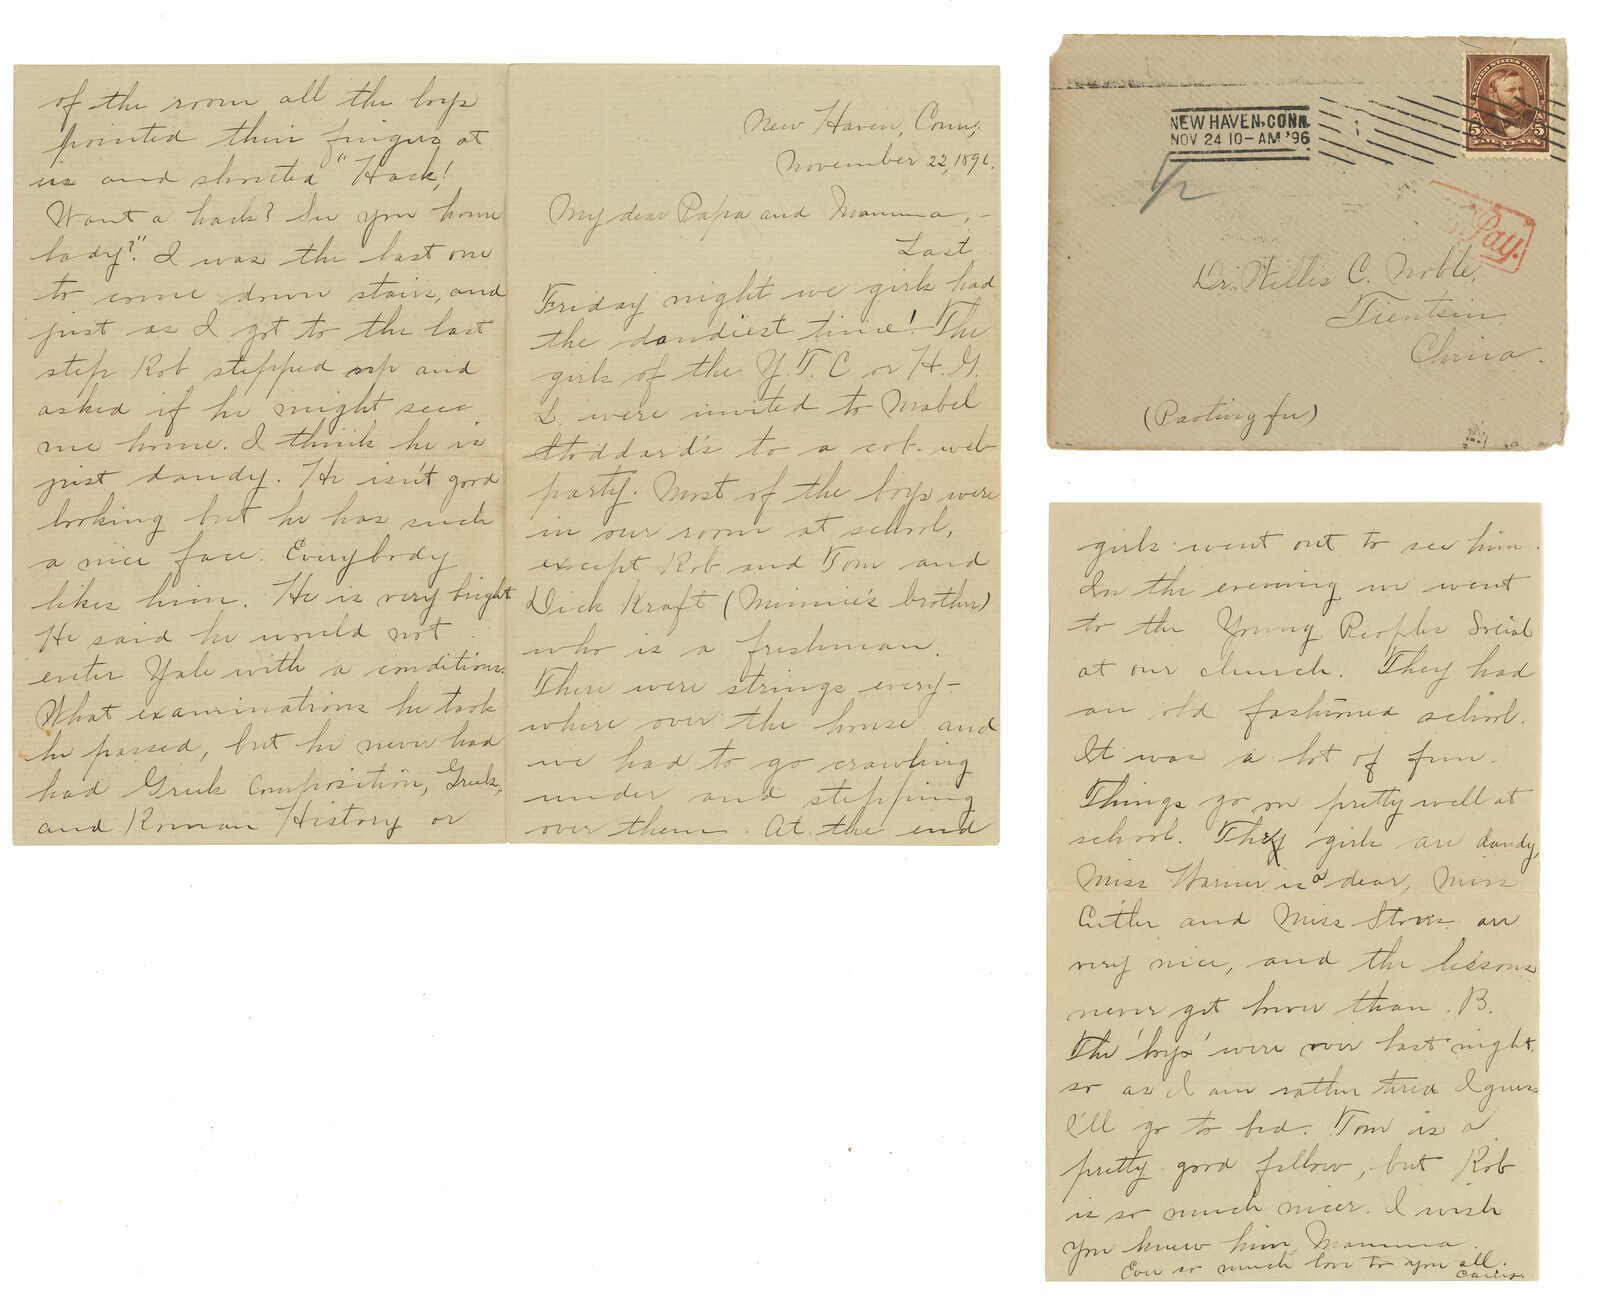 New Haven, Conn.
November 22, 1896.
My dear Papa and Mamma, -
Last
Friday night we girls had
the dandiest time! The
girls of the Y. T. C or H. G.
L. were invited to Mabel
Stoddard's to a cob-web
party. Most of the boys were
in our room at school,
except Rob and Tom and
Dick Kraft (Minnie's brother)
who is a freshman.
There were strings every-
where over the house and
we had to go crawling
under and stepping
over them. At the end
of the room all the boys
pointed their fingers at
us and shouted "Hack!
Want a hack? See you home
lady?" I was the last one
to come down stairs, and
just as I got to the last
step Rob stepped up and
asked if he might see
me home. I think he is
just dandy. He isn't good
looking but he has such
a nice face. Everybody
likes him. He is very bright
He said he would not
enter Yale with a condition.
What examinations he took
he passed, but he never had
had Greek Composition, Greek,
and Roman History or
NEW HAVEN, CONN.
NOV 24 10-AM '96
UNITED STATES POSTAGE
5 5
FIVE CENTS
1/2
Pay.
Dr. Willis C. Noble,
Tientsin,
China.
(Paotingfu)
girls went out to see him.
In the evening we went
to the Young Peoples Social
at our church. They had
an old fashioned school.
It was a lot of fun.
Things go on pretty well at
school. The girls are dandy,
Miss Warner is a dear, Miss
Cutler and Miss Stone are
very nice, and the lessons
never get lower than B.
The 'boys' were over last night,
so as I am rather tired I guess
I'll go to bed. Tom is a
pretty good fellow, but Rob
is so much nicer. I wish
you knew him, Mamma.
Ever so much love to you all.